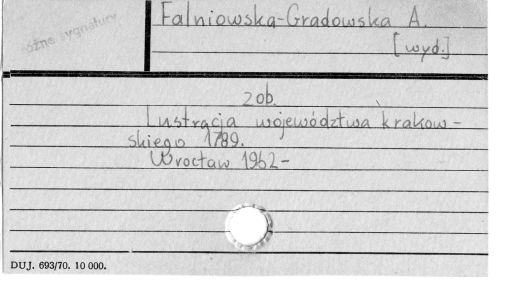 różne sygnatury
Falniowska-Gradowska A.
[wyd.]
zob.
Lustracja województwa krakow-
skiego 1789.
Wrocław 1962-
DUJ. 693/70. 10 000.